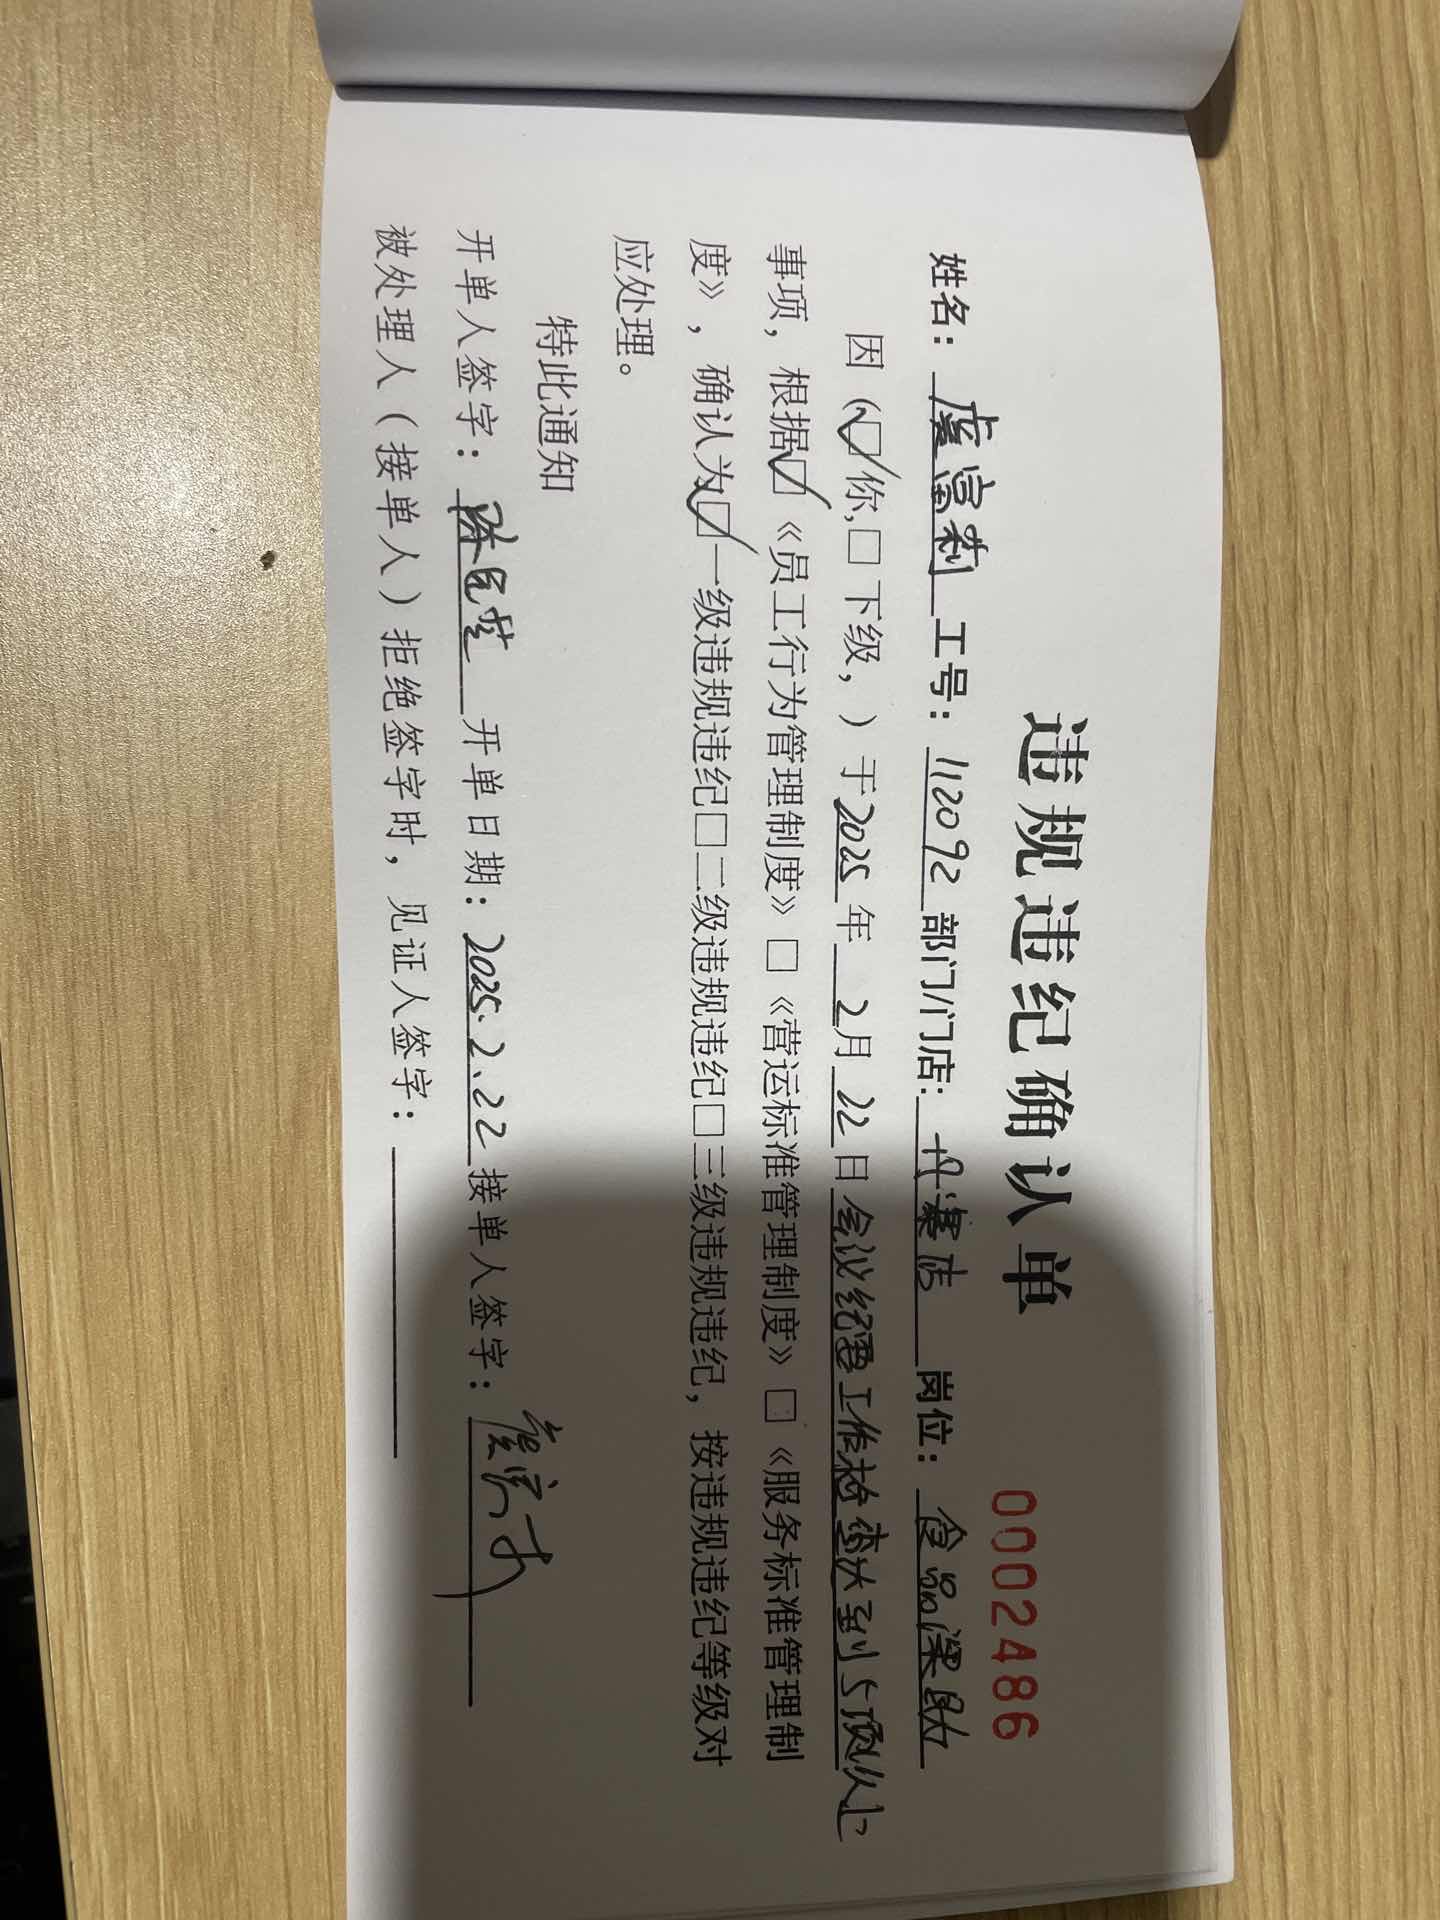 违规违纪确认单
0002486
姓名： 工号：112092 部门/门店：丹寨店 岗位：食品课助
因（☑你，□下级，）于2025年2月22日会议纪要工作检查达到5项以上
事项，根据☑《员工行为管理制度》□《营运标准管理制度》□《服务标准管理制
度》，确认为☑一级违规违纪□二级违规违纪□三级违规违纪，按违规违纪等级对
应处理。
特此通知
开单人签字： 开单日期：2025.2.22 接单人签字：
被处理人（接单人）拒绝签字时，见证人签字：